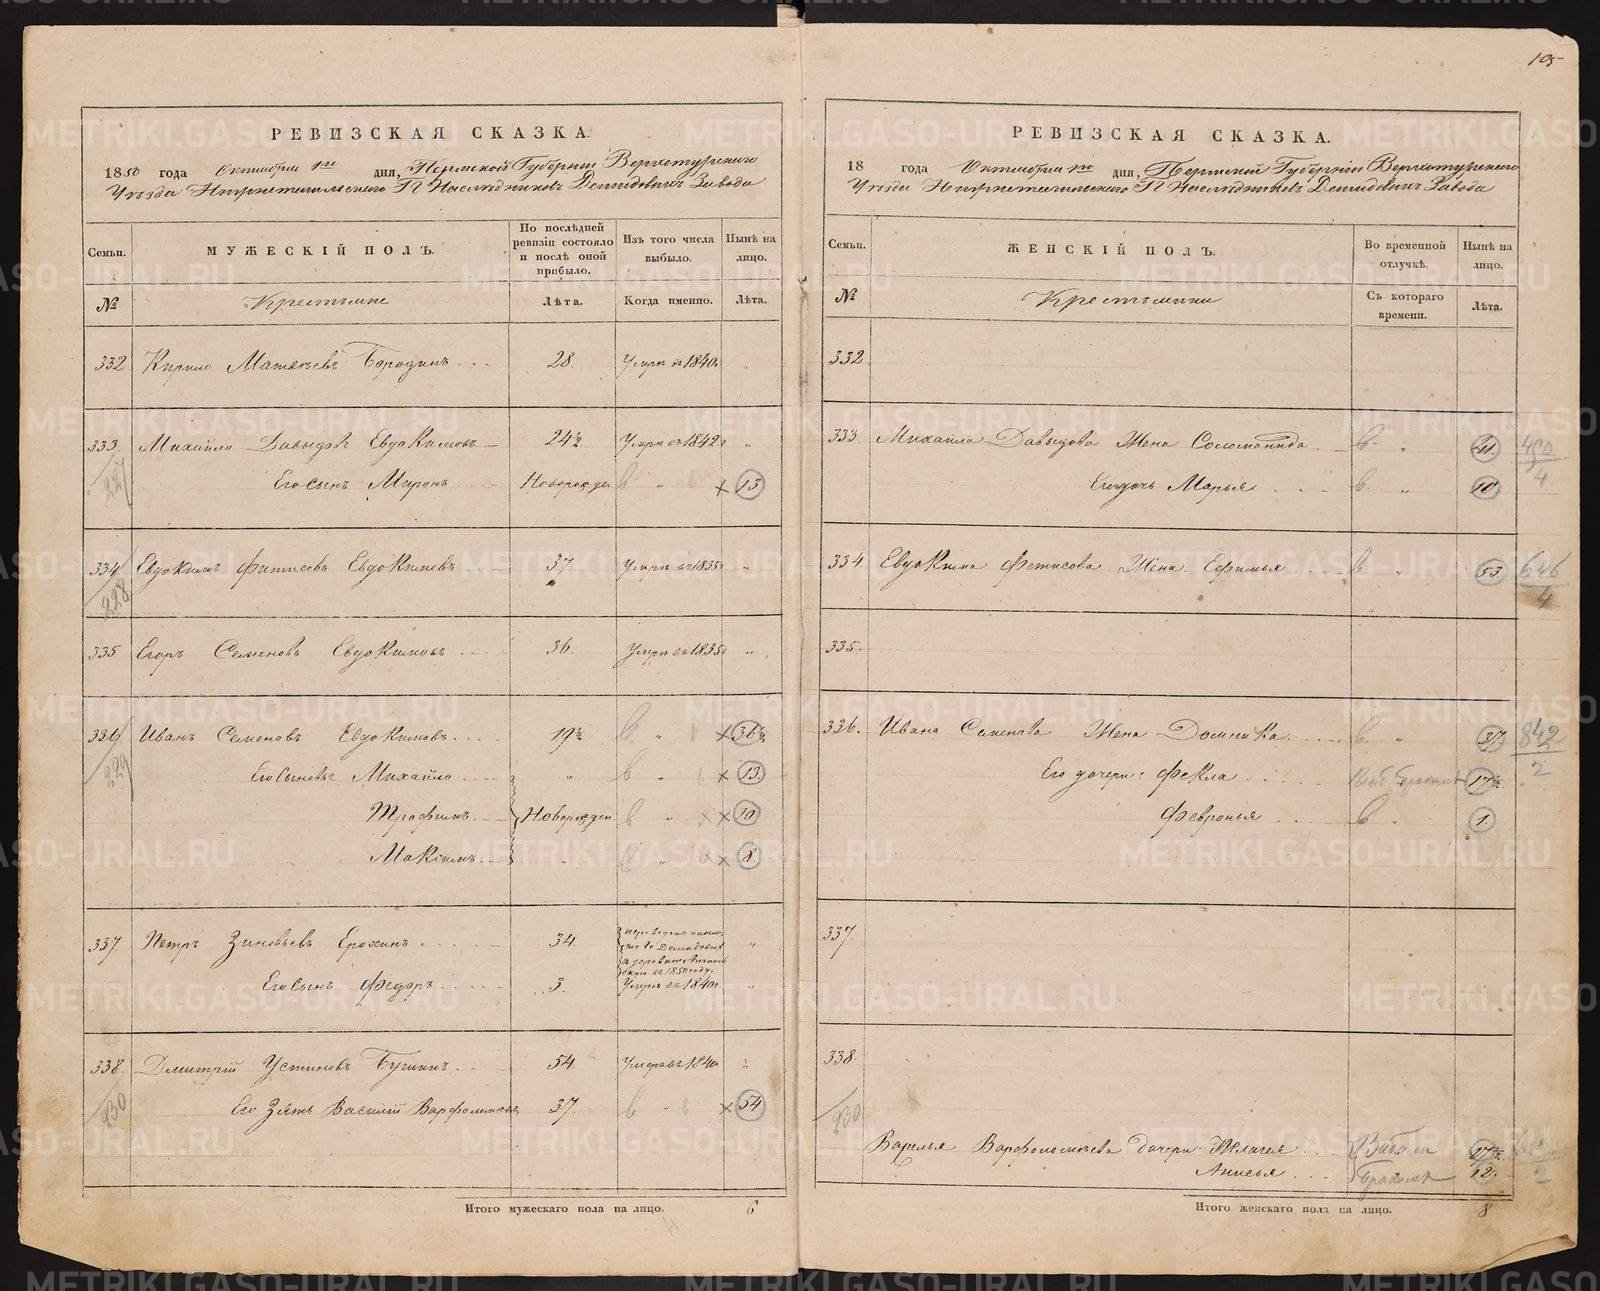 105
РЕВИЗСКАЯ СКАЗКА.
1850 года Октября 1го дня, Пермской Губернии Верхотурского
Уѣзда Нижнетагильского Г Г Наследниковъ Демидовыхъ Завода
Семьи. МУЖЕСКІЙ ПОЛЪ. По послѣдней ревизіи состояло и послѣ оной прибыло. Изъ того числа выбыло. Нынѣ на лицо.
№ Крестьяне Лѣта. Когда именно. Лѣта.
332 Кирило Матвѣевъ Бородинъ 28. Умеръ въ 1840. „
333. Михайло Давыдовъ Евдокимовъ 24½ Умеръ въ 1842. „
227 Его сынъ Миронъ Новорожден в „ × 13
334 Евдокимъ Фетисовъ Евдокимовъ 37 Умеръ въ 1835 „
228
335 Егоръ Семеновъ Евдокимовъ 36. Умеръ въ 1835 „
336 Иванъ Семеновъ Евдокимовъ 19½ в „ × 36½
229 Его сыновья Михайло „ в „ × 13.
Трофимъ Новорожден. в „ × 10
Максимъ „ в „ × 8.
337. Петръ Зиновьевъ Ерохинъ 34. „
въ 1850 году.
Его сынъ Федоръ 3. Умеръ въ 1840 „
338. Дмитрій Устиновъ 54. Умеръ въ 1840 „
230 Его Зять Василій Варфоломеевъ 37. в „ × 54
Итого мужескаго пола на лицо. 6
РЕВИЗСКАЯ СКАЗКА.
18 года Октября 1го дня, Пермской Губерніи Верхотурского
Уѣзда Нижнетагильского Г Г Наследниковъ Демидовыхъ Завода
Семьи. ЖЕНСКІЙ ПОЛЪ. Во временной отлучкѣ. Нынѣ на лицо.
№ Крестьянки Съ котораго времени. Лѣта.
332
333. Михайла Давыдова Жена Соломонида в „ 41. 450/4
Его дочь Марья в „ 10
334. Евдокима Фетисова Жена Ефимья в „ 53. 646/4
335.
336. Ивана Семенова Жена Домника в „ 37 842/2
Его дочери: Фекла Выб. бракомъ 17½
Февронья в „ 1.
337.
338.
230
Василья Варфоломеева дочери Пелагея Выбыли 17½
Анисья бракомъ 12.
Итого женскаго пола на лицо. 8
METRIKI.GASO-URAL.RU